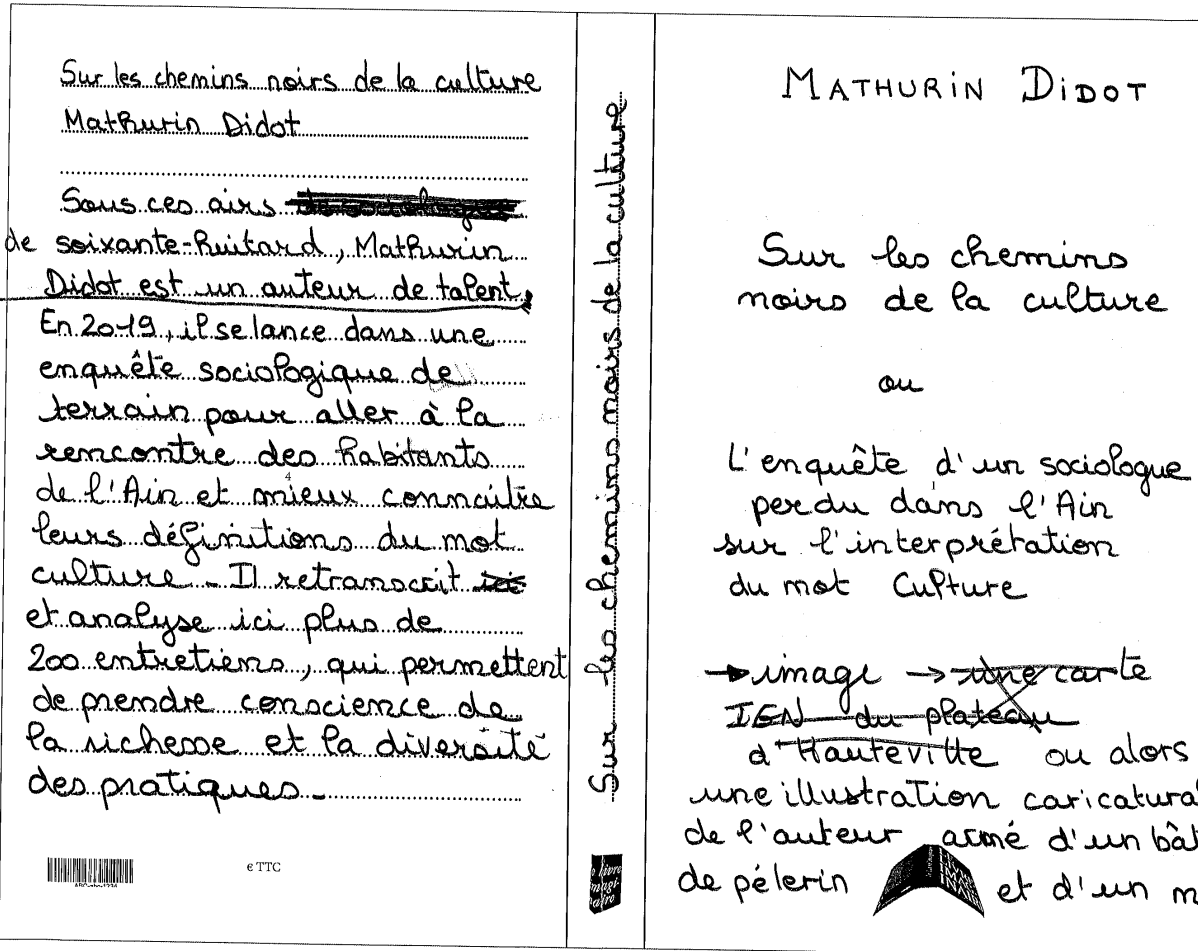 Sur les chemins noirs de la culture
Mathurin Didot
Sous ces airs
de soixante-huitard, Mathurin
Didot est un auteur de talent,
En 2019, il se lance dans une
enquête sociologique de
terrain pour aller à la
rencontre des habitants
de l'Ain et mieux connaître
leurs définitions du mot
culture - Il retranscrit ici
et analyse ici plus de
200 entretiens, qui permettent
de prendre conscience de
la richesse et la diversité
des pratiques -
€ TTC
Sur les chemins noirs de la culture
MATHURIN DIDOT
Sur les chemins
noirs de la culture
ou
L'enquête d'un sociologue
perdu dans l'Ain
sur l'interprétation
du mot Culture
→ image → une carte
IGN du plateau
d'Hauteville ou alors
une illustration
de l'auteur armé d'un
de pélerin et d'un